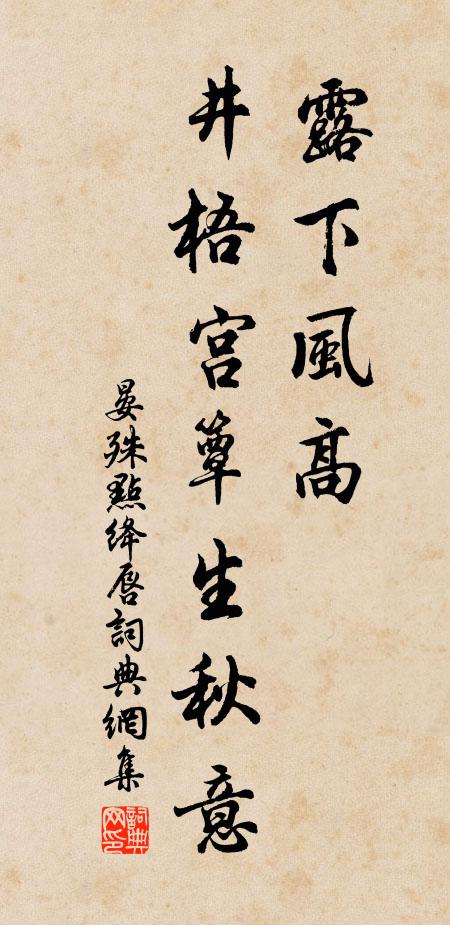 露下風高
井梧宮簟生秋意
晏殊點絳唇詞典網集
詞典网印